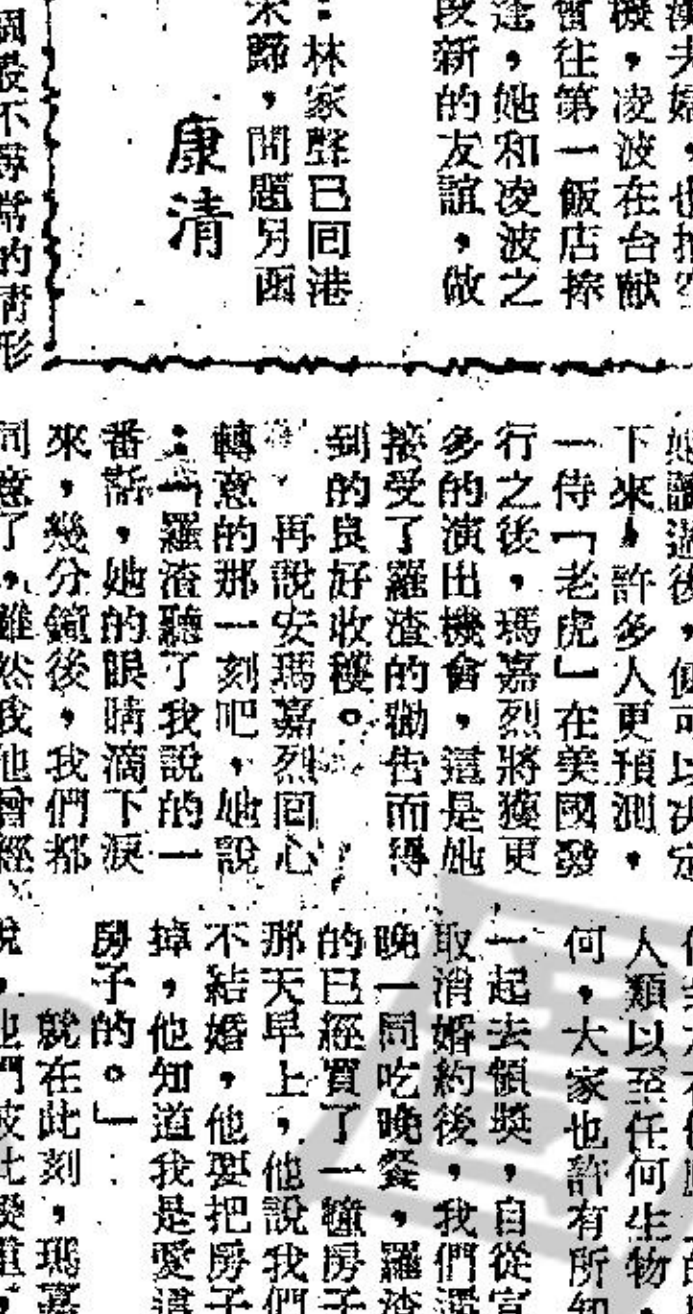 機，凌波在台献
會往第一飯店捧
逢，她和凌波之
段新的友誼，做
：林家聲已囘港
未歸，問題另函
康清
個最不尋常的情形
她讀過後，便可以决定
下來，許多人更預測，
一侍「老虎」在美國發
行之後，瑪嘉烈將獲更
多的演出機會，這是她
接受了羅渣的勸告而得
到的良好收穫。
再說安瑪嘉烈囘心
轉意的那一刻吧，她說
：「羅渣聽了我說的一
番話，她的眼睛滴下淚
來，幾分鐘後，我們都
同意了，雖然我他曾經
人類以至任何生物
何，大家也許有所知
一起去領奬，自從宣
取消婚約後，我們還
晚一同吃晚餐，羅渣
的已經買了一幢房子
那天早上，他說我們
不結婚，他要把房子
掉，他知道我是愛這
房子的。」
就在此刻，瑪嘉
說，他們彼此愛重，